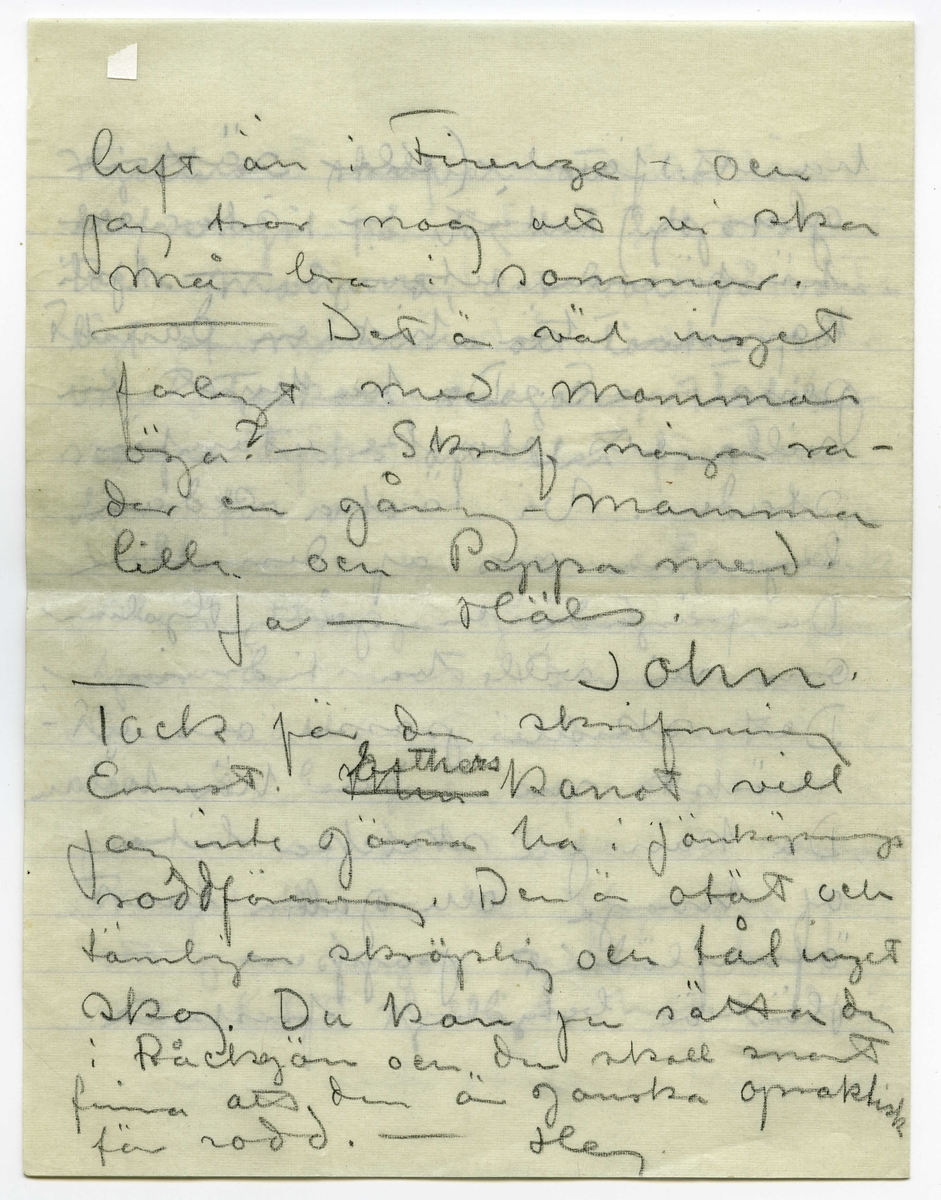 luft än i Firenze – och
jag tror nog att vi ska
må bra i sommar.
— Det ä väl inget
farligt med Mammas
öga? — Skrif några ra-
der en gång – Mamma
lilla och Pappa med.
Ja — Häls.
John.
Tack för din skrifning
Ernst. Esthers kanot vill
jag inte gärna ha i Jönköpings
roddförening. Den ä otät och
tämligen skröplig och tål inget
skoj. Du kan ju sätta den
i Råcksjön och du skall snart
finna att den är ganska opraktisk
för rodd. — Hej